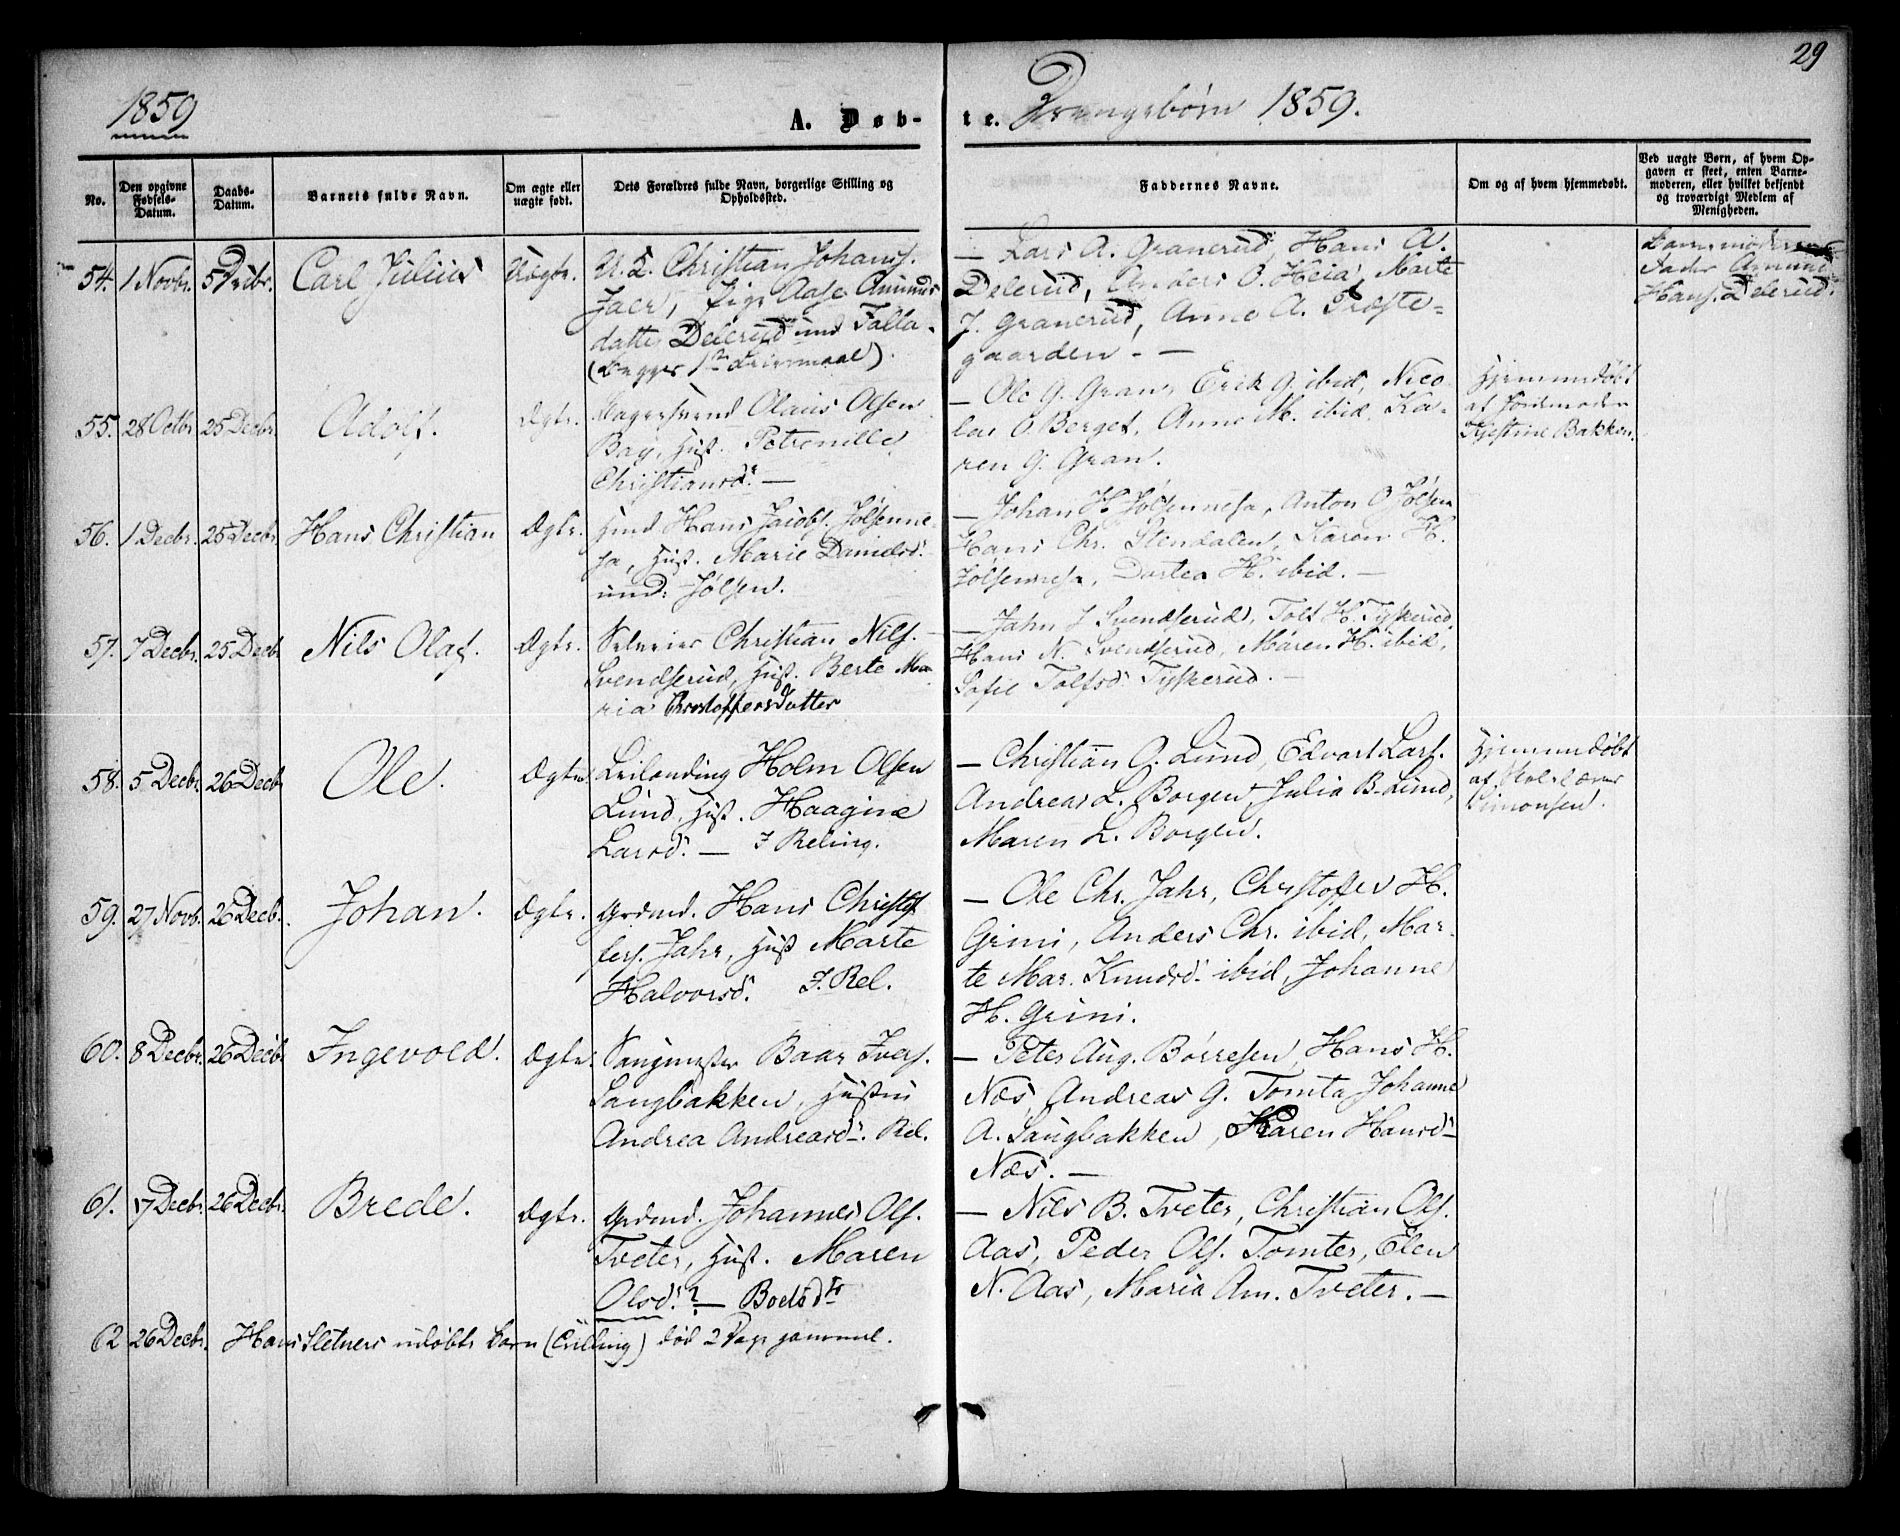 29
1859
A. Døb-
te. Drengebørn 1859.
No.
Den opgivne
Fødsels-
Datum.
Daabs-
Datum.
Barnets fulde Navn.
Om ægte eller
uægte født.
Dets Forældres fulde Navn, borgerlige Stilling og
Opholdssted.
Faddernes Navne.
Om og af hvem hjemmedøbt.
Ved uægte Børn, af hvem Op-
gaven er skeet, enten Barne-
moderen, eller hvilket bekjendt
og troværdigt Medlem af
Menigheden.
54. 1 Novbr. 5 Decbr. Carl Julius Uægte.
U. K. Christian Johans.
Jaer, Pige Aase Amunds
datter Delerud und Falla.
(Begges 1ste Leiermaal).
— Lars A. Granerud, Hans A.
Delerud, Anders O. Heia, Marte
J. Granerud, Anne A. Præste-
gaarden. —
Barnemoderens
Fader Amund
Hans. Delerud.
55. 28 Octbr. 25 Decbr. Adolf. Ægte.
Olaus Olsen
Bay, Hust. Petronille
Christiansd. —
— Ole G. Gran, Erik G. ibid, Nico-
lai O. Berget, Anne M. ibid. Ka-
ren G. Gran.
Hjemmedøbt
af Jordemoder
Kjestine Bakken.
56. 1 Decbr. 25 Decbr. Hans Christian Ægte.
Hmd Hans Jacobs. Jølsenne-
sa, Hust. Marie Danielsd.
und: Jølsen.
— Johan H. Jølsennesa, Anton O. Jølsen
Hans Chr. Stendalen, Karen H.
Jølsennesa, Dortea H. ibid. —
57. 7 Decbr. 25 Decbr. Nils Olaf. Ægte.
Selveier Christian Nils.
Svendserud, Hust. Berte Ma-
ria Christoffersdatter
— Jahn J Svendserud, Tolf H. Tyskerud,
Hans N. Svendserud, Maren H. ibid,
Sofie Tolfsd. Tyskerud. —
58. 5 Decbr. 26 Decbr. Ole. Ægte.
Leilending Holm Olsen
Lund, Hust. Haagine
Larsd. — I Reling.
— Christian O. Lund, Edvart Lars.
Andreas L. Borgen, Julia B. Lund,
Maren L. Borgen.
Hjemmedøbt
af Skolelærer
Simonsen.
59. 27 Novb. 26 Decb. Johan. Ægte.
Grdmd. Hans Christof-
fers. Jahr, Hust Marte
Halvorsd. I. Rel.
— Ole Chr. Jahr, Christoffer H.
Grini, Anders Chr. ibid, Mar-
te Mar. Knudsd. ibid, Johanne
H. Grini.
60. 8 Decbr. 26 Decbr. Ingevold. Ægte.
Saugmester Baar Ivers.
Saugbakken, Hustru
Andrea Andreasd. Rel.
— Peter Aug. Børresen, Hans H.
Næs, Andreas G. Tomta, Johanne
A. Saugbakken, Karen Hansd.
Næs. —
61. 7 Decbr. 26 Decbr. Brede. Ægte.
Grdmd. Johannes Ols.
Tveter, Hust. Maren
Olsd.? — Boelsdtr
— Nils B. Tveter, Christian Ols.
Aas, Peder Ols. Tomter, Elen
N. Aas, Maria Am. Tveter. —
62 26 Decbr. Hans Sletners udøbte Barn (Tvilling) død 2 Dage gammel.